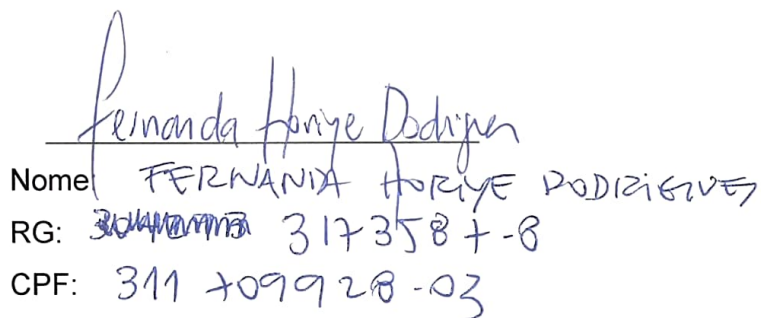 Fernanda Horiye Rodrigues
Nome: FERNANDA HORIYE RODRIGUES
RG: 3173587-8
CPF: 311 709928-03